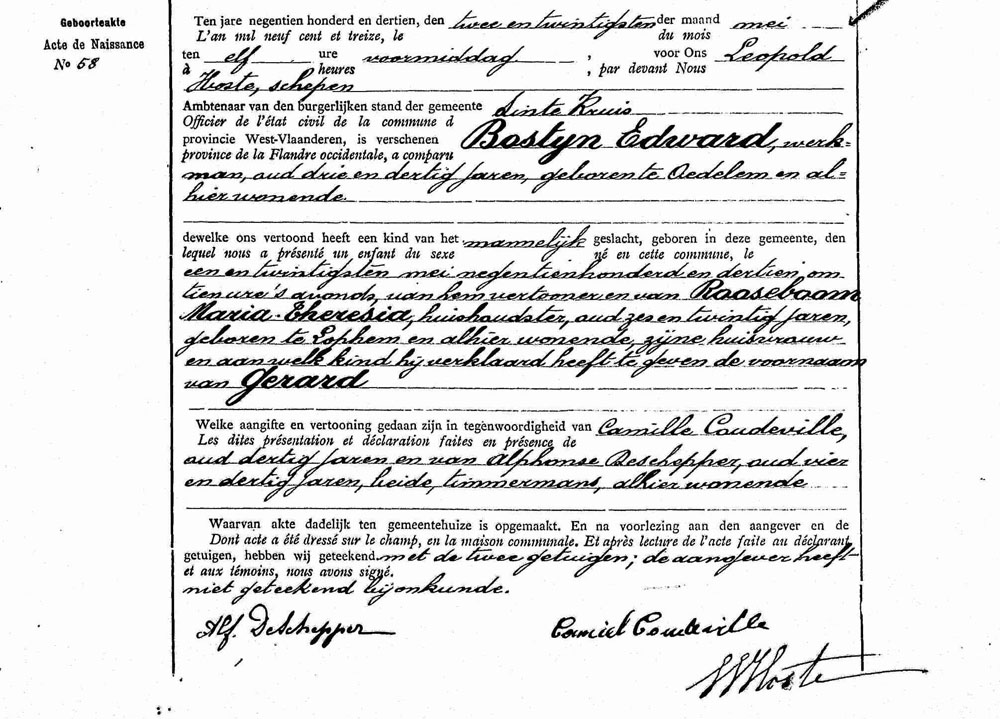 Geboorteakte
Acte de Naissance
No 58
Ten jare negentien honderd en dertien, den twee en twintigsten der maand mei
L'an mil neuf cent et treize, le du mois
ten elf ure voormiddag , voor Ons Leopold
à heures , par devant Nous
Hoste, schepen
Ambtenaar van den burgerlijken stand der gemeente Sinte Kruis
Officier de l'état civil de la commune d
provincie West-Vlaanderen, is verschenen Bostyn Edward, werk=
province de la Flandre occidentale, a comparu
man, oud drie en dertig jaren, geboren te Oedelem en al=
hier wonende.
dewelke ons vertoond heeft een kind van het mannelijk geslacht, geboren in deze gemeente, den
lequel nous a présenté un enfant du sexe né en cette commune, le
een en twintigsten mei negentienhonderd en dertien, om
tien ure's avonds, van hem vertooner en van Rooseboom
Maria-Theresia, huishoudster, oud zes en twintig jaren,
geboren te Lophem en alhier wonende, zijne huisvrouw
en aan welk kind hij verklaard heeft te geven de voornaam
van Gerard
Welke aangifte en vertooning gedaan zijn in tegenwoordigheid van Camille Coudeville,
Les dites présentation et déclaration faites en présence de
oud dertig jaren en van Alphonse Deschepper, oud vier
en dertig jaren, beide, timmermans, alhier wonende
Waarvan akte dadelijk ten gemeentehuize is opgemaakt. En na voorlezing aan den aangever en de
Dont acte a été dressé sur le champ, en la maison communale. Et après lecture de l'acte faite au déclarant
getuigen, hebben wij geteekend met de twee getuigen; de aangever heeft
et aux témoins, nous avons signé.
niet geteekend bij onkunde.
Alf. DeSchepper Camiel Coudeville
Hoste